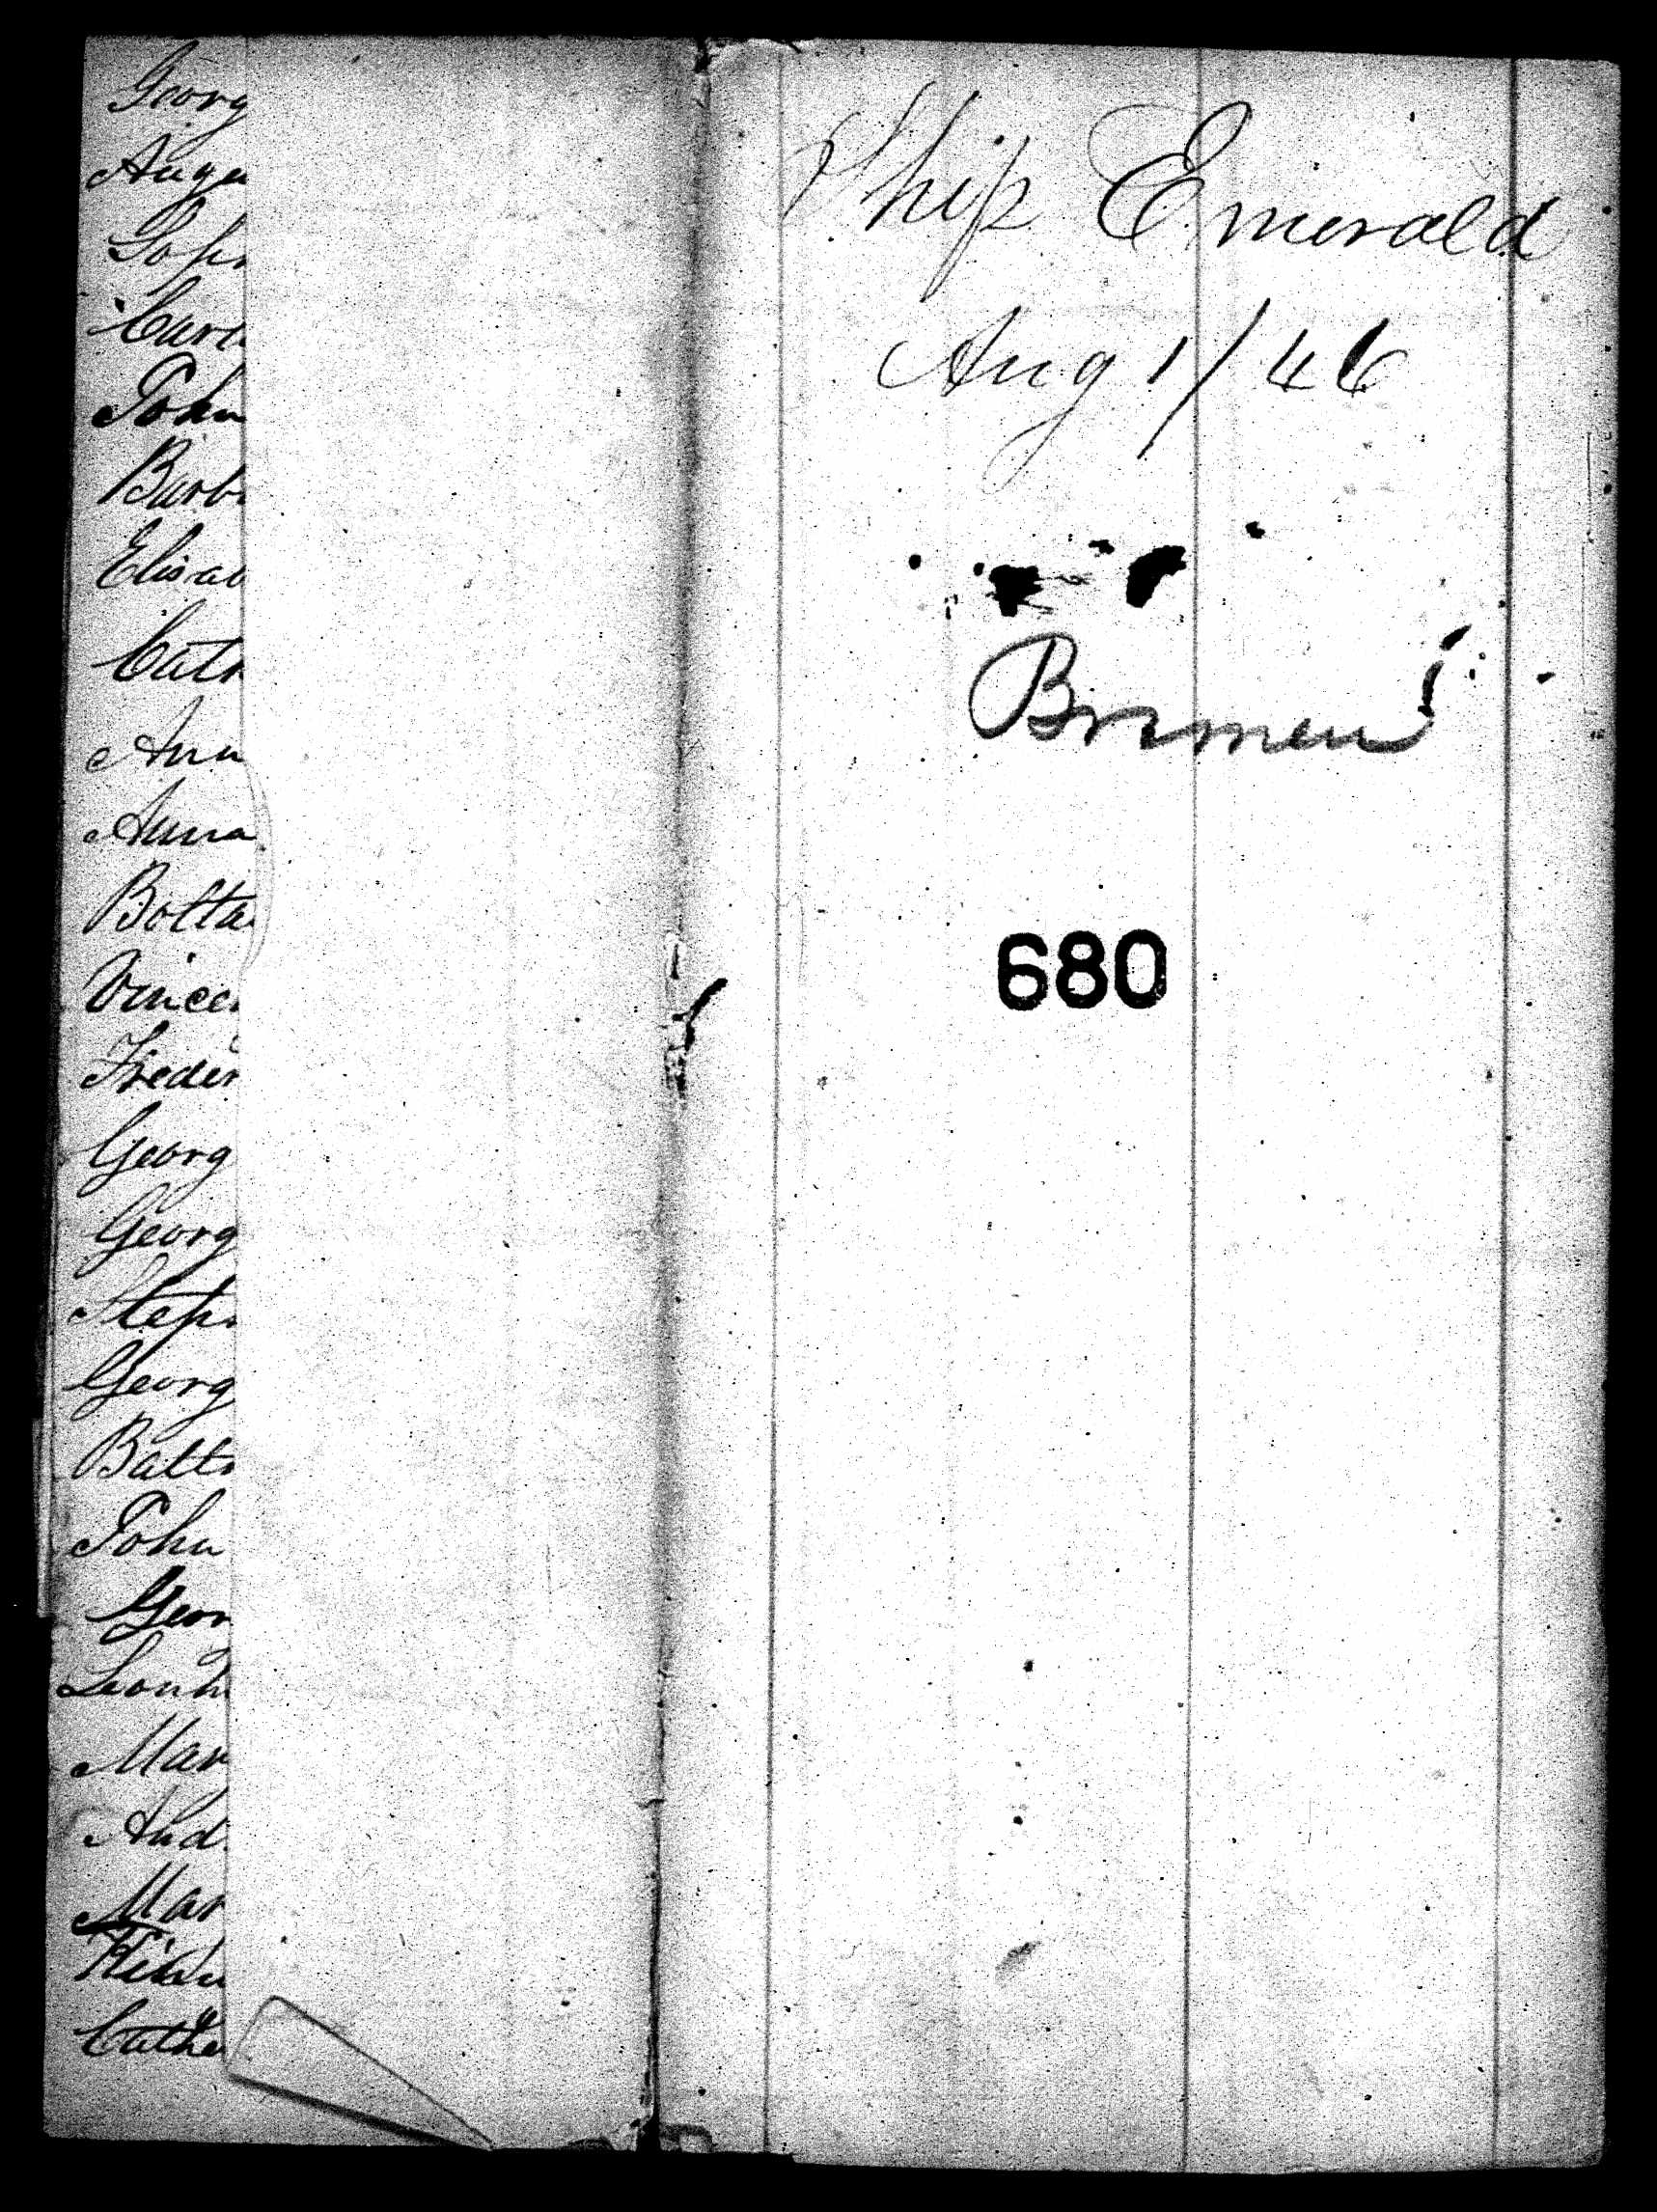 Georg
Augu
Soph
Caro
John
Barb
Elisab
Cath
Ann
Anna
Balta
Vincen
Freder
Georg
Georg
Steph
Georg
Balt
John
Geor
Leonh
Mar
And
Mar
Cathe
Ship Emerald
Aug 1/46
Bremen
680